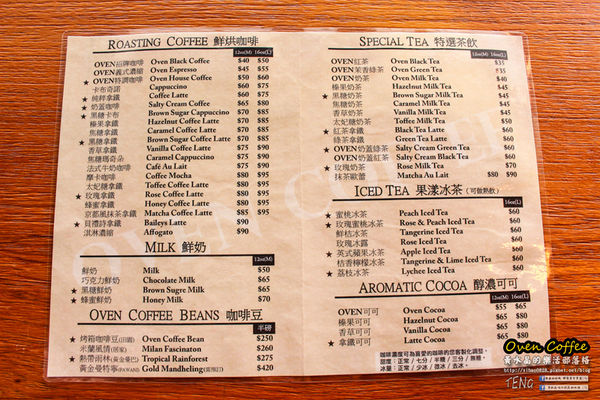 ROASTING COFFEE 鮮烘咖啡
12oz(M) 16oz(L)
OVEN招牌咖啡 Oven Black Coffee $40 $50
OVEN義式濃縮 Oven Espresso $45 $55
★ OVEN特調咖啡 Oven House Coffee $50 $60
卡布奇諾 Cappuccino $60 $75
★ 純粹拿鐵 Coffee Latte $60 $75
★ 奶蓋咖啡 Salty Cream Coffee $65 $80
★ 黑糖卡布 Brown Sugar Cappuccino $70 $85
榛果拿鐵 Hazelnut Coffee Latte $70 $85
焦糖拿鐵 Caramel Coffee Latte $70 $85
★ 黑糖拿鐵 Brown Sugar Coffee Latte $70 $85
香草拿鐵 Vanilla Coffee Latte $75 $90
焦糖瑪奇朵 Caramel Cappuccino $75 $90
法式牛奶咖啡 Café Au Lait $75 $90
摩卡咖啡 Coffee Mocha $80 $95
太妃糖拿鐵 Toffee Coffee Latte $80 $95
★ 玫瑰拿鐵 Rose Coffee Latte $80 $95
蜂蜜拿鐵 Honey Coffee Latte $80 $95
京都風抹茶拿鐵 Matcha Coffee Latte $85 $95
★ 貝禮詩拿鐵 Baileys Latte $90
淇淋濃縮 Affogato $90
MILK 鮮奶
12oz(M)
鮮奶 Milk $50
巧克力鮮奶 Chocolate Milk $65
★ 黑糖鮮奶 Brown Sugre Milk $65
★ 蜂蜜鮮奶 Honey Milk $70
OVEN COFFEE BEANS 咖啡豆
半磅
★ 烤箱咖啡豆 Oven Coffee Bean $250
米蘭風情 Milan Fascinaton $260
★ 熱帶雨林 Tropical Rainforest $275
黃金曼特寧(PAWANI) Gold Mandheling $420
SPECIAL TEA 特選茶飲
12oz(M) 16oz(L)
OVEN紅茶 Oven Black Tea $35
OVEN茉香綠茶 Oven Green Tea $35
OVEN奶茶 Oven Milk Tea $40
榛果奶茶 Hazelnut Milk Tea $45
★ 黑糖奶茶 Brown Sugar Milk Tea $45
焦糖奶茶 Caramel Milk Tea $45
香草奶茶 Vanilla Milk Tea $45
太妃糖奶茶 Toffee Milk Tea $50
★ 紅茶拿鐵 Black Tea Latte $60
綠茶拿鐵 Green Tea Latte $60
★ OVEN奶蓋綠茶 Salty Cream Green Tea $60
OVEN奶蓋紅茶 Salty Cream Black Tea $60
★ 玫瑰奶茶 Rose Milk Tea $70
抹茶歐蕾 Matcha Au Lait $80 $90
ICED TEA 果漾冰茶 (可做熱飲)
16oz(L)
★ 蜜桃冰茶 Peach Iced Tea $60
★ 玫瑰蜜桃冰茶 Rose & Peach Iced Tea $60
鮮桔冰茶 Tangerine Iced Tea $60
玫瑰冰露 Rose Iced Tea $60
★ 英式蘋果冰茶 Apple Iced Tea $60
桔香檸檬冰茶 Tangerine & Lime Iced Tea $60
★ 荔枝冰茶 Lychee Iced Tea $60
AROMATIC COCOA 醇濃可可
12oz(M) 16oz(L)
OVEN可可 Oven Cocoa $55 $65
榛果可可 Hazelnut Cocoa $65 $80
香草可可 Vanilla Cocoa $65 $80
★ 拿鐵可可 Latte Cocoa $65 $80
咖啡濃度可為喜愛的咖啡的您客製化調整。
甜度：正常／七分／半糖／三分／無糖。
冰量：正常／少冰／微冰／去冰。
Oven Coffee
黃水晶的樂活部落格
TENG